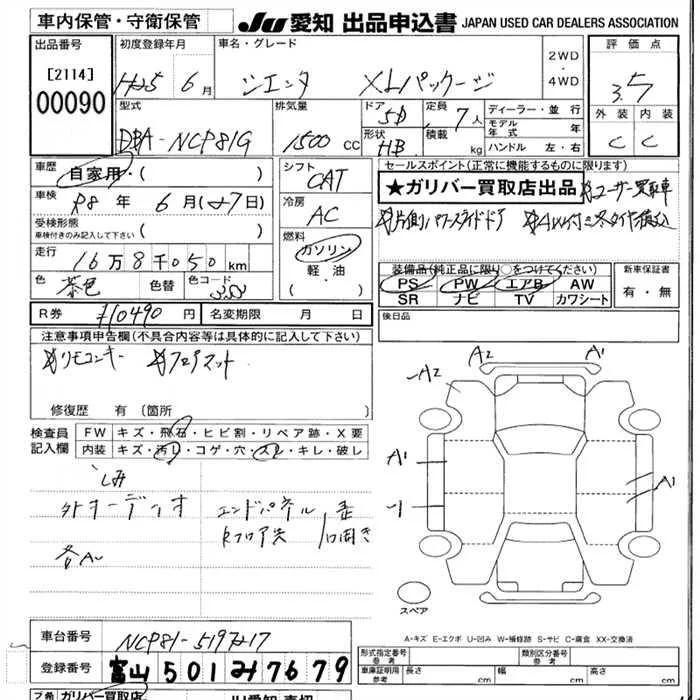 車内保管・守衛保管
JU 愛知 出品申込書 JAPAN USED CAR DEALERS ASSOCIATION
出品番号
[2114]
00090
初度登録年月
H25 6月
車名・グレード
シエンタ XLパッケージ
2WD
・
4WD
評価点
3.5
外装 内装
C C
型式
DBA-NCP81G
排気量
1500 cc
ドア
5D
形状
HB
定員
7人
積載 kg
ディーラー・並行
モデル年式 年
ハンドル 左・右
車歴
自家用・( )
車検
R8年 6月( 日)
受検形態
車検付きのみ記入して下さい ( )
走行
16万8千050km
色
茶色
色替
色コード
シフト
CAT
冷房
AC
燃料
ガソリン
軽油
( ・ )
セールスポイント(正常に機能するものに限ります)
★ガリバー買取店出品 ユーザー買取車
片側パワースライドドア
装備品(純正品に限り○をつけてください)
PS PW エアB AW
SR ナビ TV カワシート
新車保証書
有・無
R券 ¥10490円
名変期限 月 日
後日品
注意事項申告欄(不具合内容等は具体的に記入して下さい)
リモコンキー フロアマット
修復歴 有 [箇所 ]
検査員記入欄
FW キズ・飛石・ヒビ割・リペア跡・X要
内装 キズ・汚れ・コゲ・穴・スレ・キレ・破レ
シミ
外オーディオ
エンドパネル
A2 A1
A2
A1
A1
スペア
A-キズ E-エクボ U-凹み W-補修跡 S-サビ C-腐食 XX-交換済
車台番号
NCP81-
登録番号
富山 501 み 7679
形式指定番号
参考
類別区分番号
参考
車庫証明用
参考
長さ cm
幅 cm
高さ cm
ガリバー買取店
JU愛知